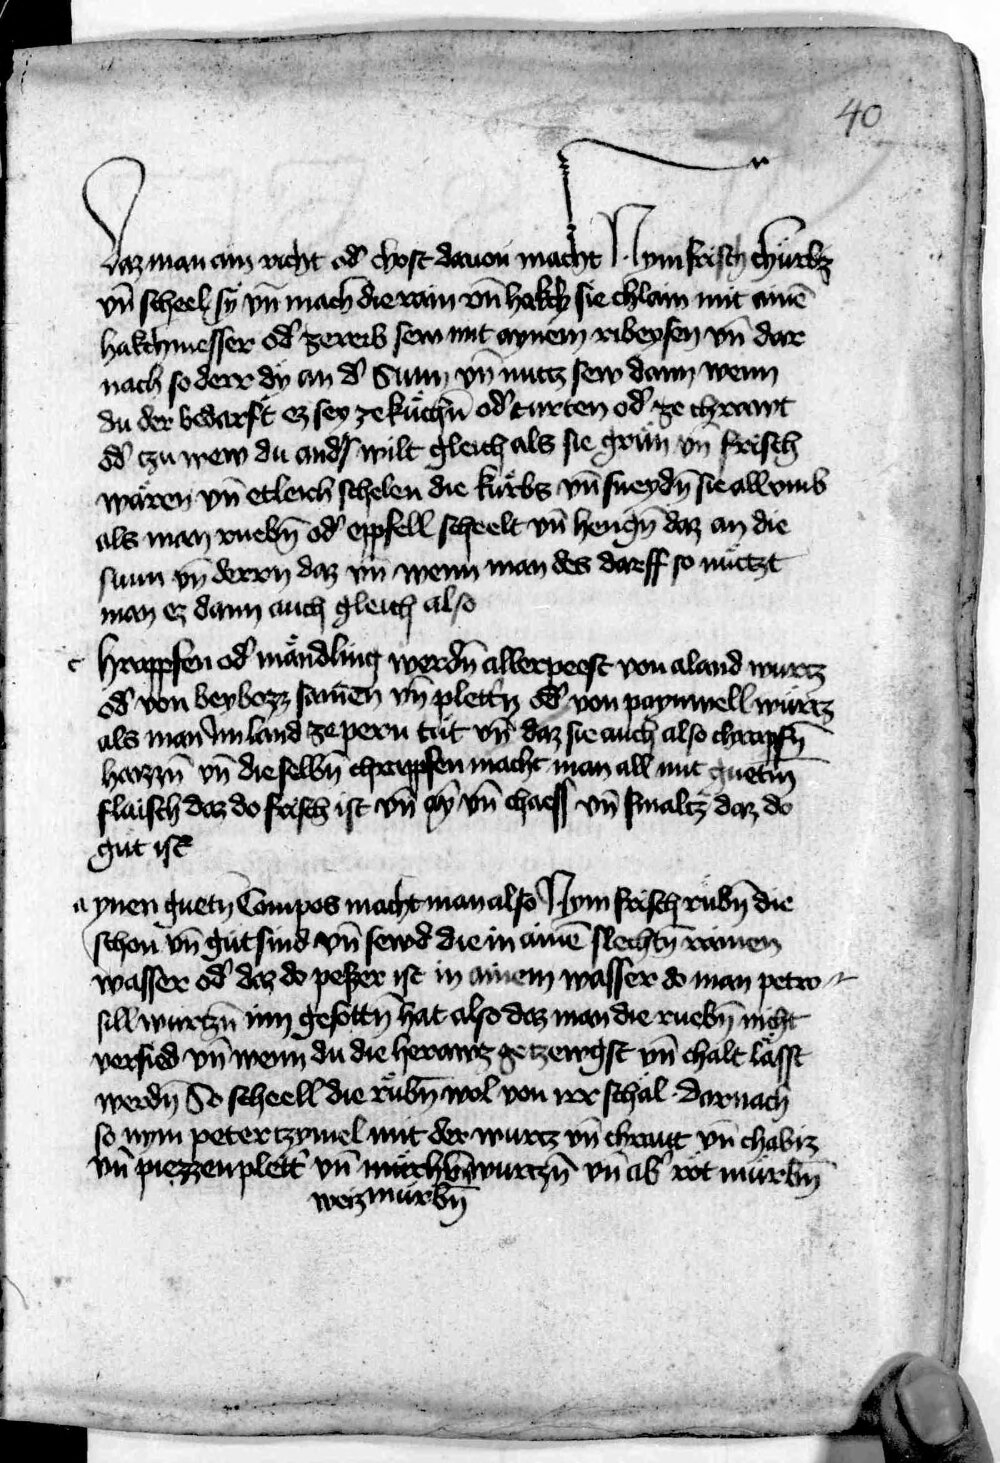 40
daz man ain richt od̕ chost dauon macht Nym frisch chürbz
vn̄ scheel sÿ vn̄ mach die rain vn̄ hakch sie chlain mit ainē
hakchmesser od̕ zereib sew mit aynem ribeysen vn̄ dar
nach so derr dy an d̕ Sunn vn̄ nutz sew dann wenn
du der bedarft ez sey ze küchn̄ od̕ turten od̕ ze chrawt
od̕ tzu wew du anders wilt gleich als sie grün vn̄ frisch
wären vn̄ etleich schelen die kürbs vn̄ sneydn̄ sie all vmb
als man ruebn̄ od̕ eppfell scheelt vn̄ hengn̄ daz an die
sunn vn̄ derrn daz vn̄ wenn man des darff so nützt
man ez dann auch gleich also
c hrappfen od̕ mändling werdn̄ allerpeest von aland wurtz
od̕ von beybozz samen vn̄ plettn̄ od̕ von paynwell wurtz
als man im land ze pern tüt vn̄ daz sie auch also chrapfn̄
haizzn̄ vn̄ dieselbn̄ chrappfen macht man all mit guetm̄
flaisch daz do frisch ist vn̄ ay vn̄ chaess vn̄ smaltz daz do
güt ist
a ynen guetn̄ Compos macht man also Nym frisch rübn̄ die
schon vn̄ güt sind vn̄ sewd die in ainē slechtn̄ rainen
wasser od̕ daz do pesser ist in ainem wasser do man petro
sill wurtzn̄ inn gesottn̄ hat also daz man die ruebn̄ nicht
versied vn̄ wenn du die herawz getzewgst vn̄ chalt lässt
werdn̄ So scheell die rübn̄ wol von irr schal · darnach
so nym petertzymel mit der wurtz vn̄ chrawt vn̄ chabiz
vn̄ piezzenplett̕ vn̄ mürchn̄wurtzn̄ vn̄ ab̕ röt mürbn̄
weizmürbn̄